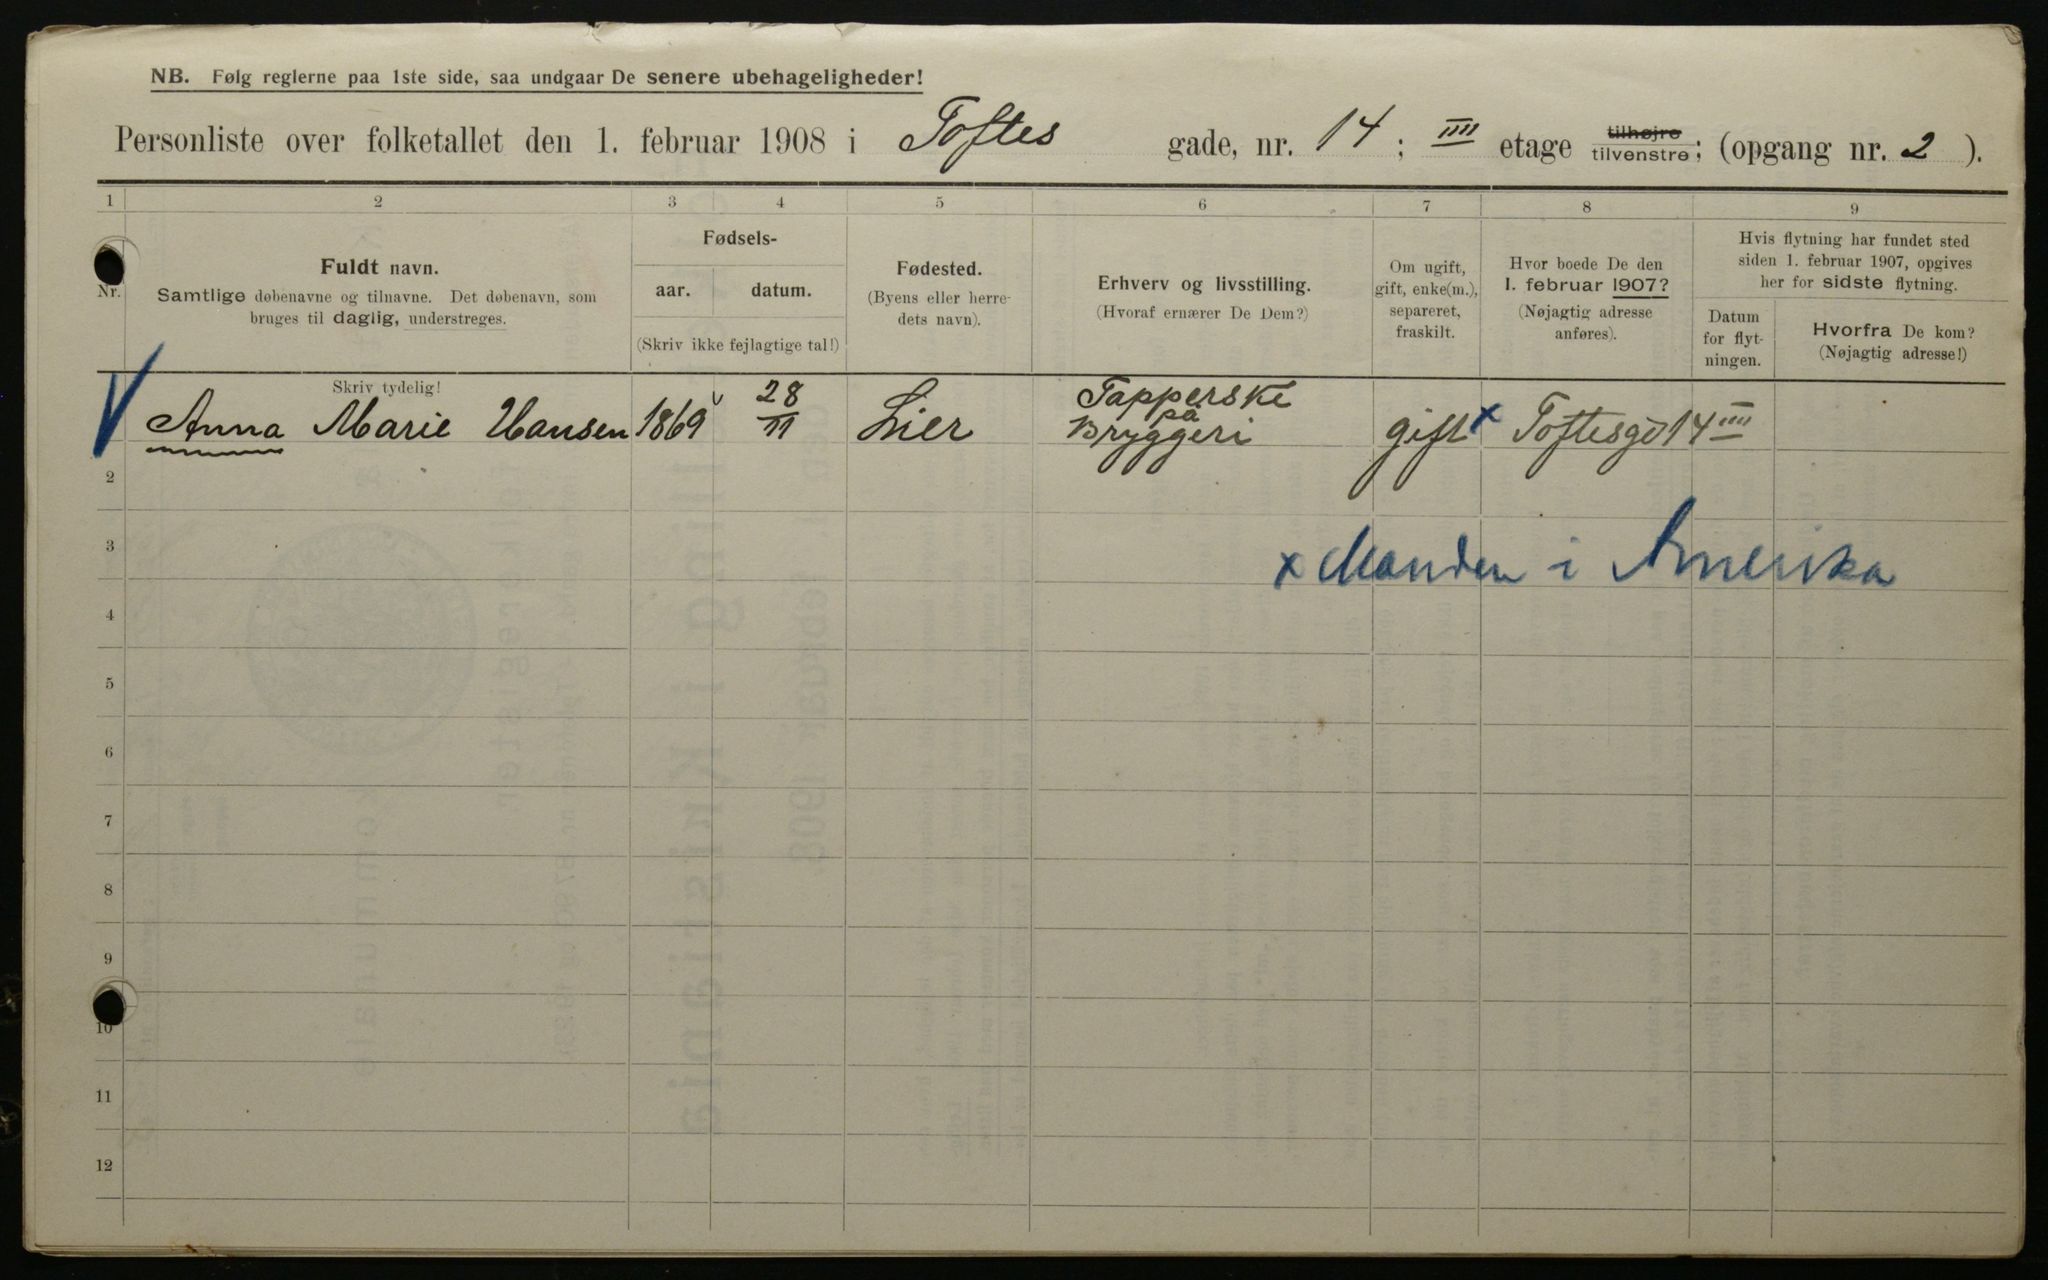 NB. Følg reglerne paa 1ste side, saa undgaar De senere ubehageligheder!
Personliste over folketallet den 1. februar 1908 i Toftes gade, nr. 14; IIII etage tilhøjre tilvenstre; (opgang nr. 2 ).
1 2 3 4 5 6 7 8 9
Nr.
Fuldt navn.
Samtlige døbenavne og tilnavne. Det døbenavn, som
bruges til daglig, understreges.
Fødsels-
aar. datum.
(Skriv ikke fejlagtige tal!)
Fødested.
(Byens eller herre-
dets navn).
Erhverv og livsstilling.
(Hvoraf ernærer De Dem?)
Om ugift,
gift, enke(m.),
separeret,
fraskilt.
Hvor boede De den
1. februar 1907?
(Nøjagtig adresse
anføres).
Hvis flytning har fundet sted
siden 1. februar 1907, opgives
her for sidste flytning.
Datum
for flyt-
ningen.
Hvorfra De kom?
(Nøjagtig adresse!)
Skriv tydelig!
Anna Marie Hansen 1869 28/11 Lier Tapperske
på
Bryggeri gift x Toftesgd 14 IIII
2
3 x Manden i Amerika
4
5
6
7
8
9
10
11
12